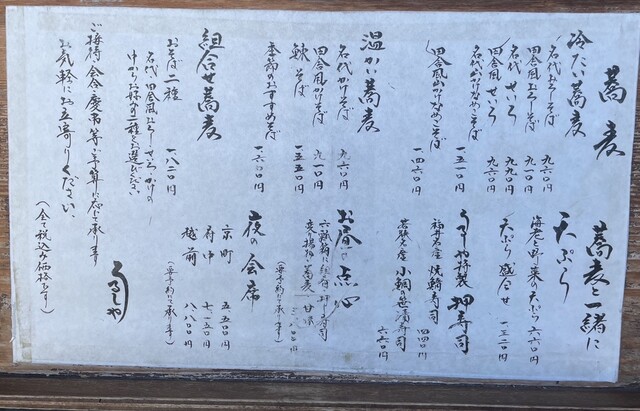 蕎麦
冷たい蕎麦
名代おろしそば 九六〇円
田舎風おろしそば 九一〇円
名代せいろ 九九〇円
田舎風せいろ 九六〇円
名代かけなめこそば 一五一〇円
田舎風かけなめこそば 一四六〇円
温かい蕎麦
名代かけそば 九六〇円
田舎風かけそば 九一〇円
鰊そば 一五五〇円
季節のおすすめそば 一六〇〇円
組合せ蕎麦
おそば二種 一八二〇円
名代、田舎風おろし、せいろ、かけの
中からお好み二種をお選びください
ご接待、会食、慶弔等ご予算に応じて承ります
お気軽にお立寄りください。
(全て税込み価格です)
蕎麦と一緒に
天ぷら
海老と野菜の天ぷら 六六〇円
天ぷら盛合せ 一三二〇円
うるしや特製 押寿司
福井名産 焼鯖寿司 四四〇円
若狭名産 小鯛笹漬寿司 六六〇円
お昼の点心
変り揚げ 蕎麦 甘味 三八〇〇円
(要予約にて承ります)
夜の会席
京町 五五〇〇円
府中 七一五〇円
越前 八八〇〇円
(要予約にて承ります)
うるしや